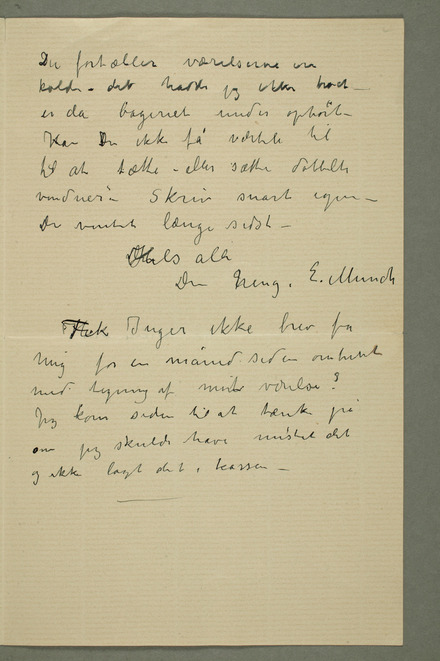 Du fortæller værelserne er
kolde – det hadde jeg ikke trod –
er da bageriet under ophört –
Kan Du ikke få værten til
til at tætte – eller sætte dobbelte
vinduer i – Skriv snart igen –
Du ventet længe sidst –
Hils alle
Din heng. E. Munch
Fick Inger ikke brev fra
mig for en måned siden omtrent
med tegning af mit værelse?
Jeg kom siden til at tænke på
om jeg skulde have mistet det
og ikke lagt det i kassen –